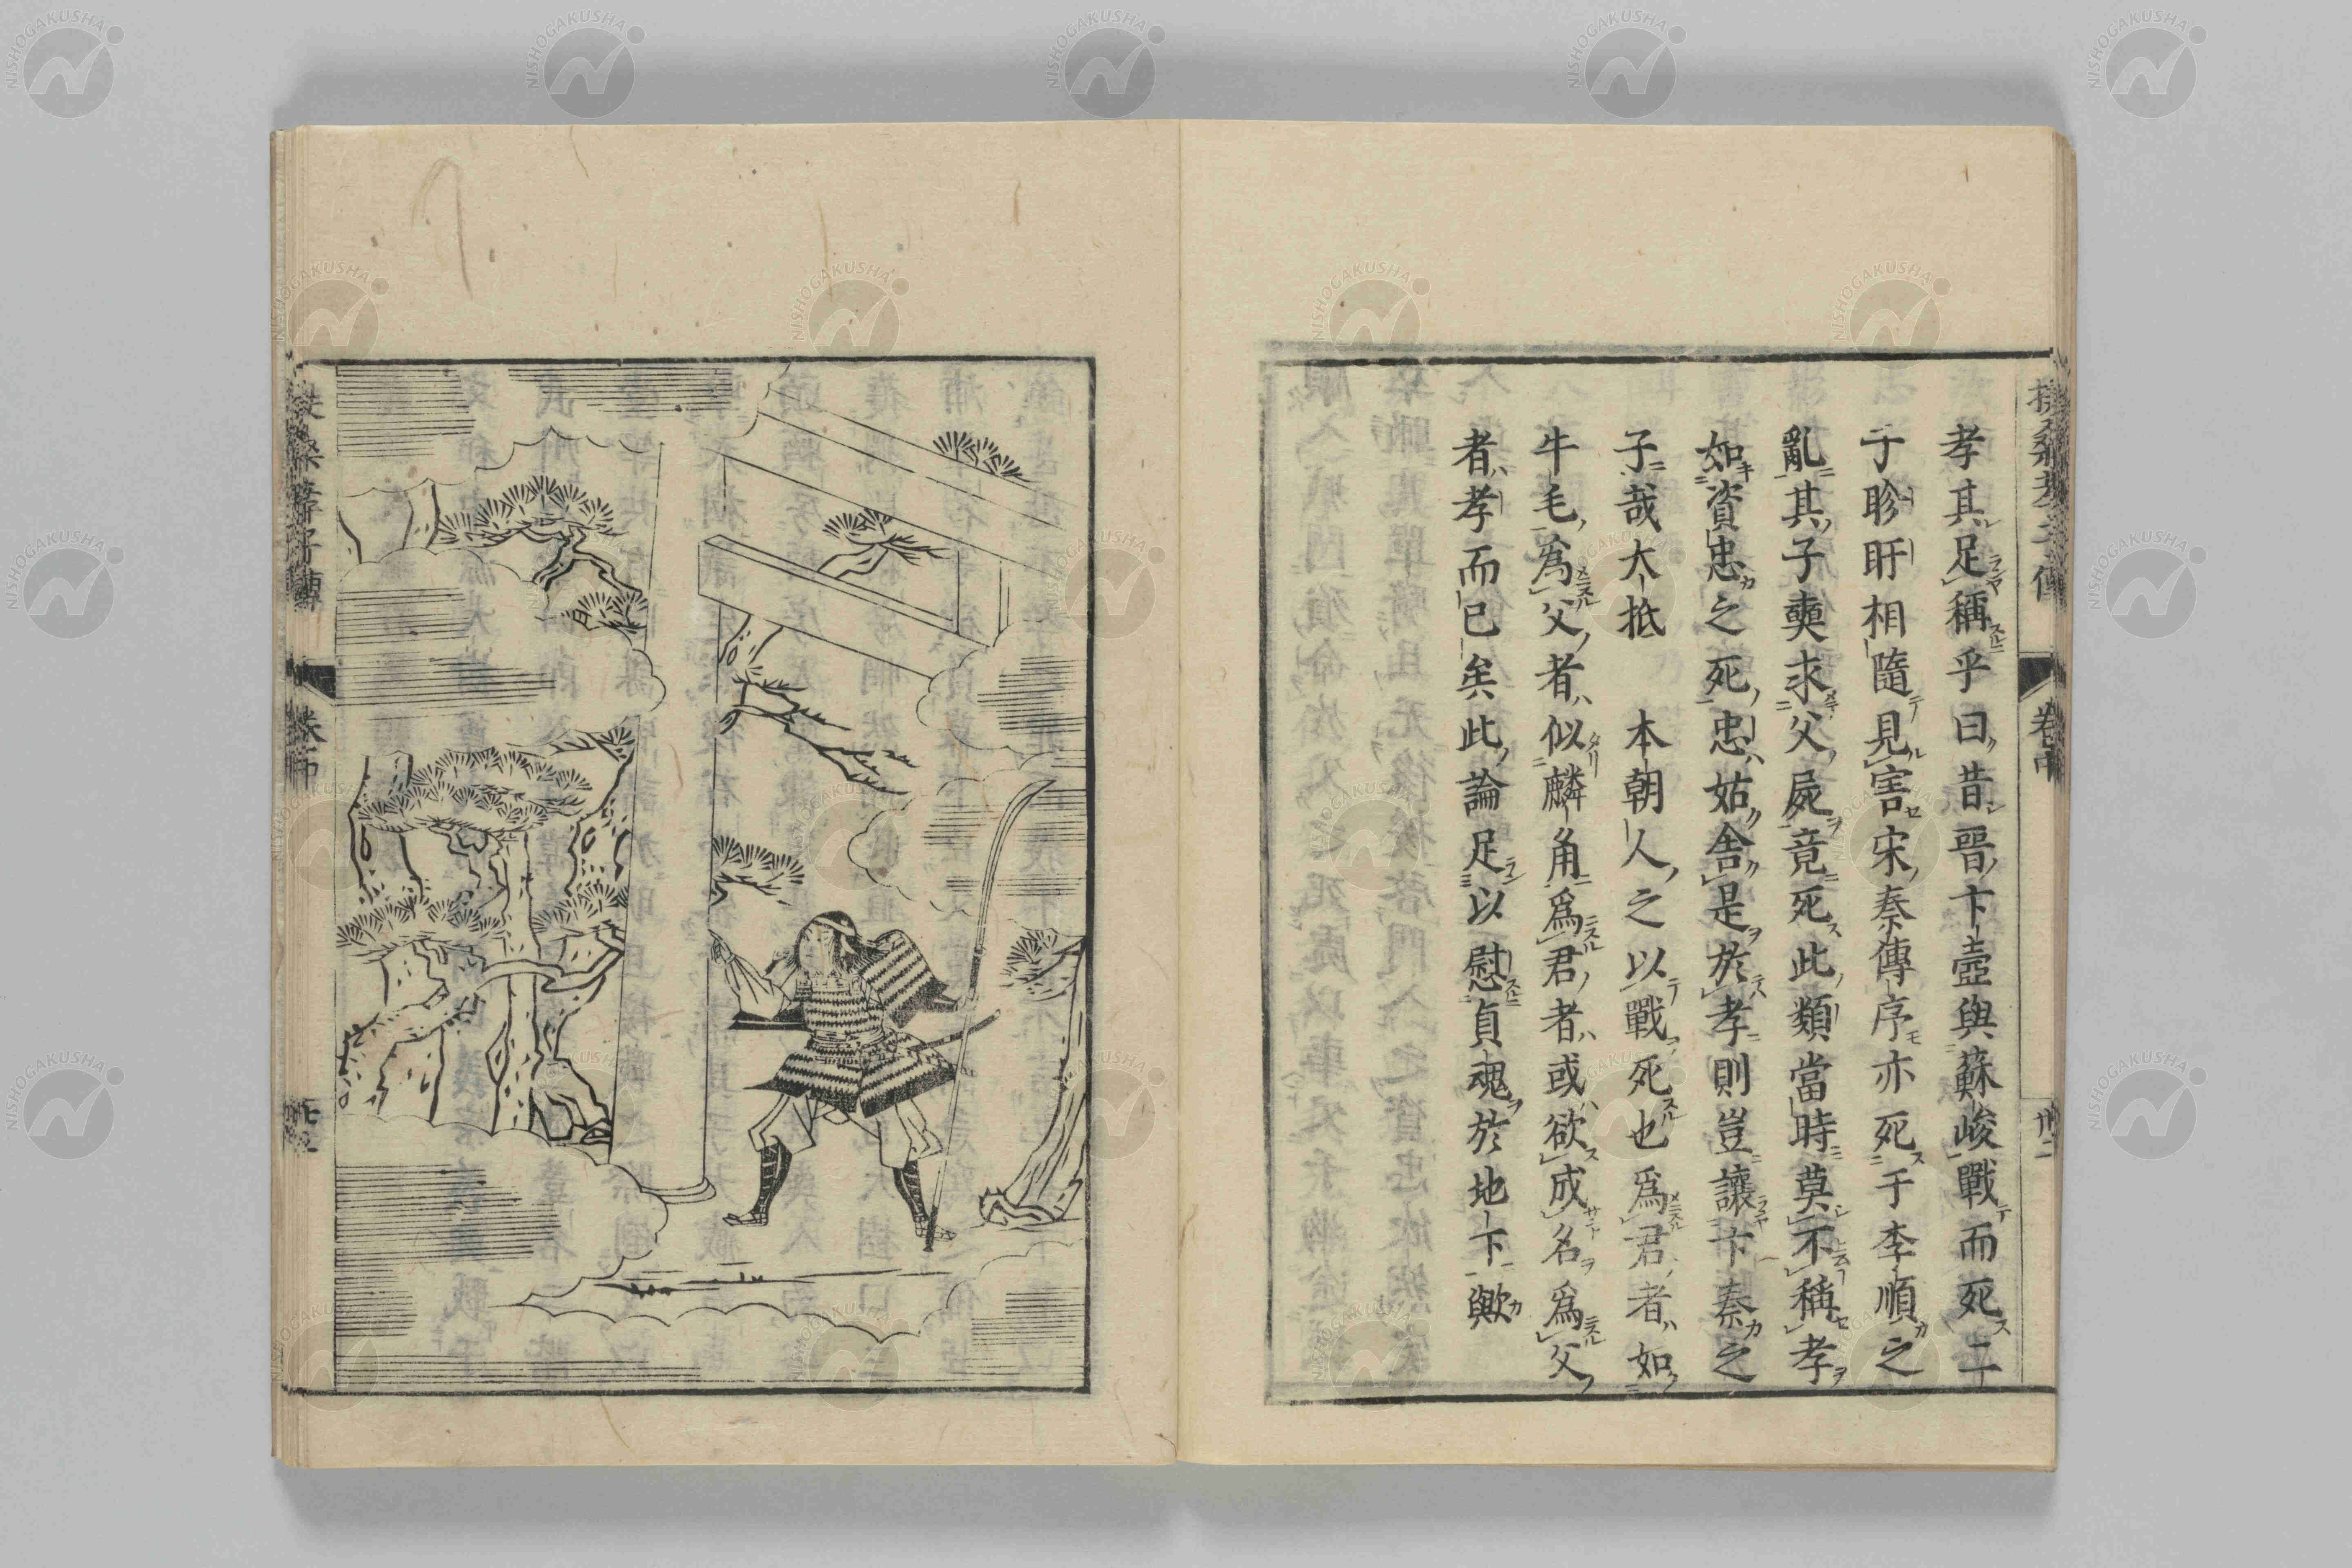 孝其足稱乎曰昔晉卞壼與蘇峻戰而死二
子眕盱相隨見害宋秦傳序亦死于李順之
亂其子奭求父屍竟死此類當時莫不稱孝
如資忠之死忠姑舍是於孝則豈讓卞秦之
子哉大抵 本朝人之以戰死也爲君者如
牛毛爲父者似麟角爲君者或欲成名爲父
者孝而已矣此論足以慰貞魂於地下歟
卷中
NISHOGAKUSHA